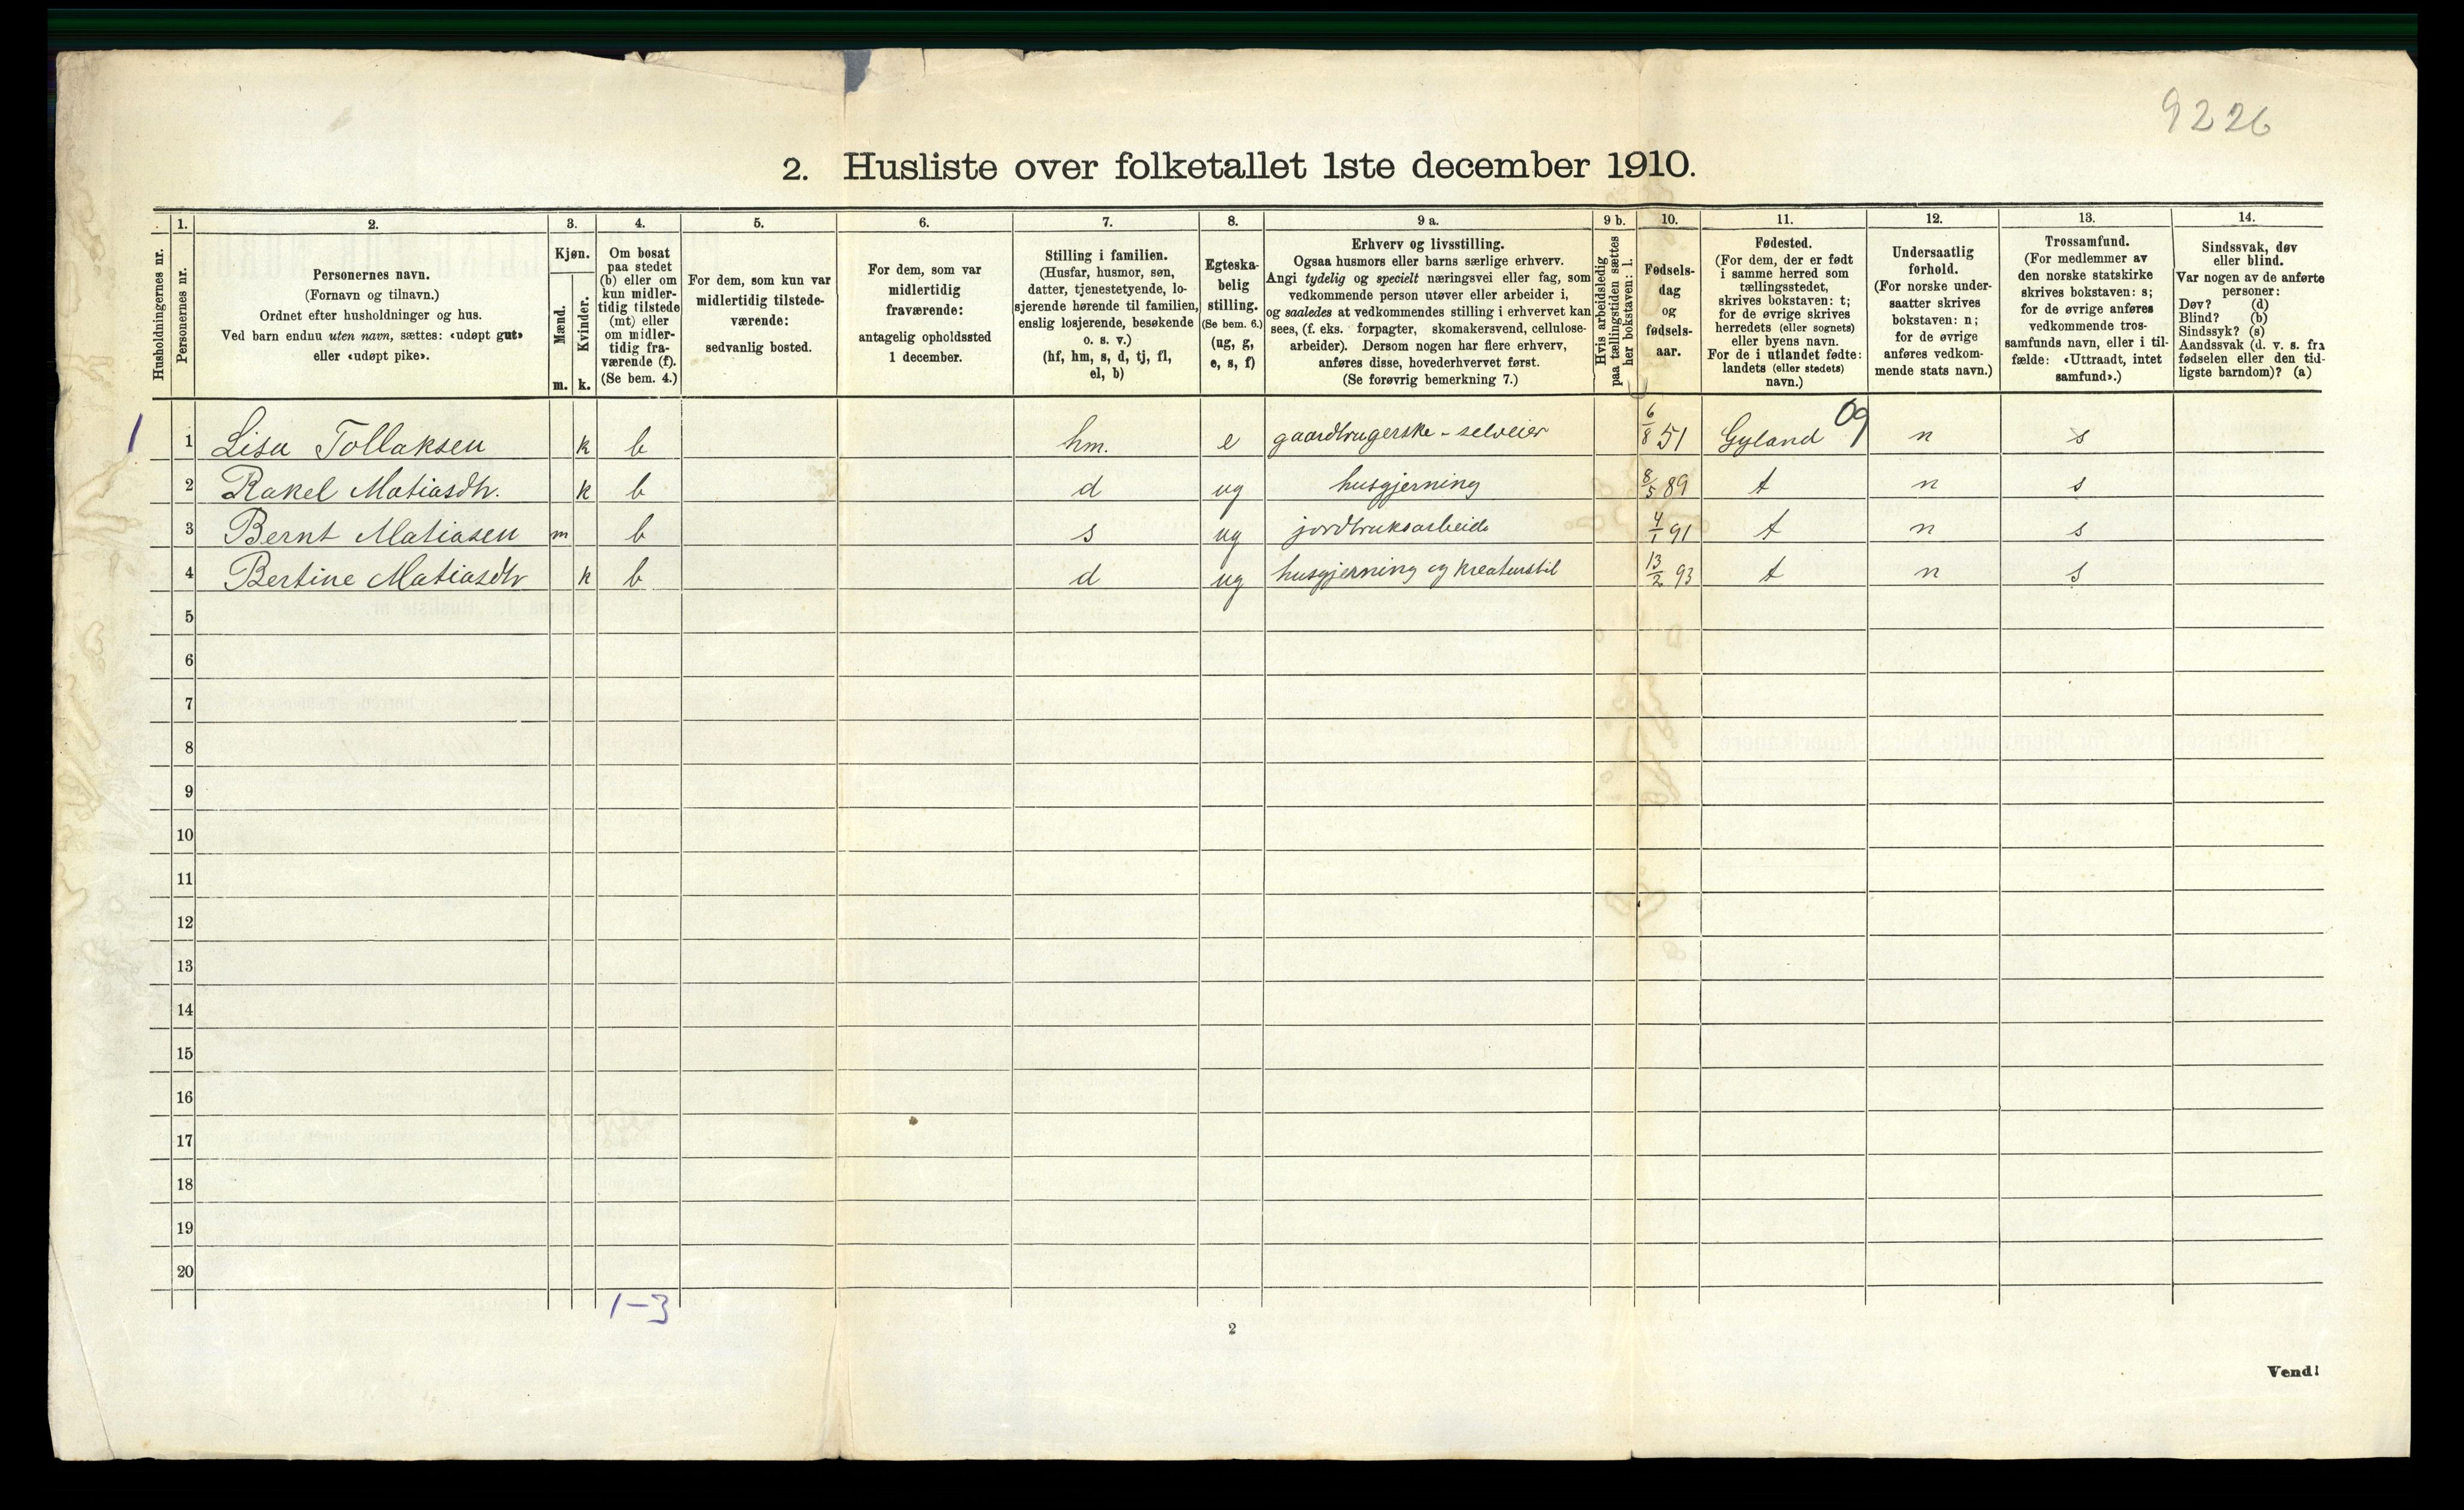 9226
2. Husliste over folketallet 1ste december 1910.
Husholdningernes nr.
1.
Personernes nr.
2.
Personernes navn.
(Fornavn og tilnavn.)
Ordnet efter husholdninger og hus.
Ved barn endnu uten navn, sættes: «udøpt gut»
eller «udøpt pike».
3.
Kjøn.
Mænd.
Kvinder.
m. k.
4.
Om bosat
paa stedet
(b) eller om
kun midler-
tidig tilstede
(mt) eller
om midler-
tidig fra-
værende (f).
(Se bem. 4.)
5.
For dem, som kun var
midlertidig tilstede-
værende:
sedvanlig bosted.
6.
For dem, som var
midlertidig
fraværende:
antagelig opholdssted
1 december.
7.
Stilling i familien.
(Husfar, husmor, søn,
datter, tjenestetyende, lo-
sjerende hørende til familien,
enslig losjerende, besøkende
o. s. v.)
(hf, hm, s, d, tj, fl,
el, b)
8.
Egteska-
belig
stilling.
(Se bem. 6.)
(ug, g,
e, s, f)
9 a.
Erhverv og livsstilling.
Ogsaa husmors eller barns særlige erhverv.
Angi tydelig og specielt næringsvei eller fag, som
vedkommende person utøver eller arbeider i,
og saaledes at vedkommendes stilling i erhvervet kan
sees, (f. eks. forpagter, skomakersvend, cellulose-
arbeider). Dersom nogen har flere erhverv,
anføres disse, hovederhvervet først.
(Se forøvrig bemerkning 7.)
9 b.
Hvis arbeidsledig
paa tællingstiden sættes
her bokstaven: l.
10.
Fødsels-
dag
og
fødsels-
aar.
11.
Fødested.
(For dem, der er født
i samme herred som
tællingsstedet,
skrives bokstaven: t;
for de øvrige skrives
herredets (eller sognets)
eller byens navn.
For de i utlandet fødte:
landets (eller stedets)
navn.)
12.
Undersaatlig
forhold.
(For norske under-
saatter skrives
bokstaven: n;
for de øvrige
anføres vedkom-
mende stats navn.)
13.
Trossamfund.
(For medlemmer av
den norske statskirke
skrives bokstaven: s;
for de øvrige anføres
vedkommende tros-
samfunds navn, eller i til-
fælde: «Uttraadt, intet
samfund».)
14.
Sindssvak, døv
eller blind.
Var nogen av de anførte
personer:
Døv? (d)
Blind? (b)
Sindssyk? (s)
Aandssvak (d. v. s. fra
fødselen eller den tid-
ligste barndom)? (a)
1 1 Lisa Tollaksen k b hm. e gaardbrugerske - selveier 6/8 51 Gyland 09 n s
2 Rakel Matiasdtr. k b d ug husgjerning 8/5 89 t n s
3 Bernt Matiasen m b s ug jordbruksarbeide 4/1 91 t n s
4 Bertine Matiasdtr k b d ug husgjerning og kreaturstel 13/2 93 t n s
5
6
7
8
9
10
11
12
13
14
15
16
17
18
19
20
1-3
2
Vend!